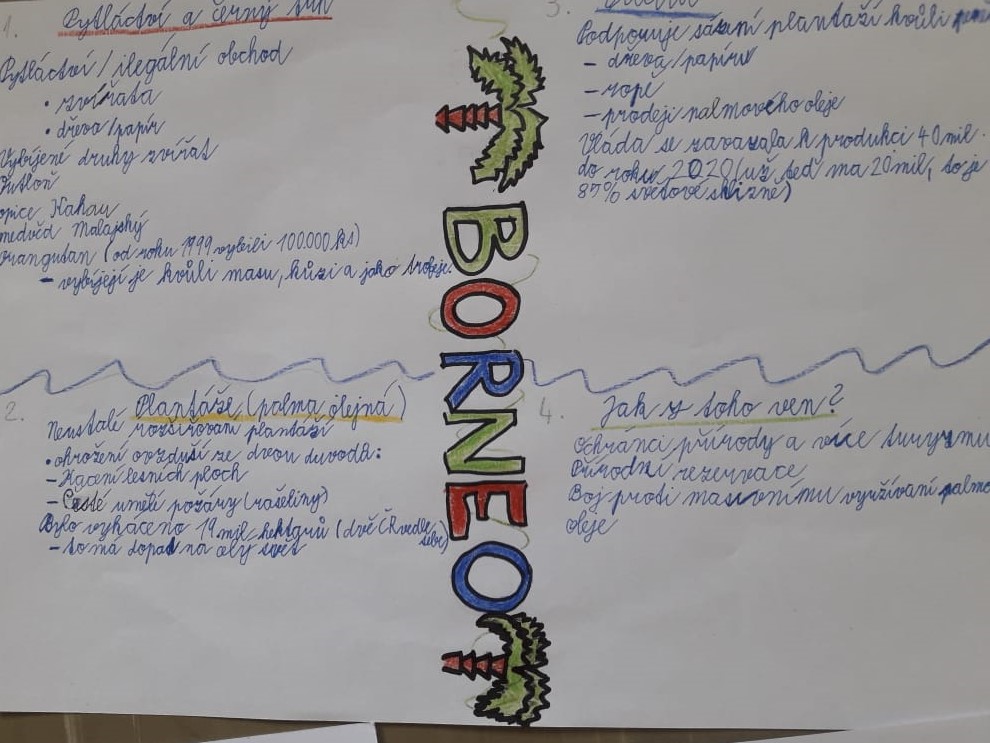 1. Pytláctví a černý trh
Pytláctví / ilegální obchod
• zvířata
• dřeva/papír
Vybíjené druhy zvířat
opice Kahau
medvěd Malajský
orangutan (od roku 1999 vybili 100.000 ks)
- vybíjejí je kvůli masu, kůzi a jako trofeje.
2. Plantáže (palma olejná)
Neustalé rozšiřovaní plantáží
• ohrožení ovzduší ze dvou duvodů:
- Kácení lesních ploch
- Časté umělé požáry (rašeliny)
Bylo vykáceno 19 mil. hektarů (dvě ČR vedle sebe)
- to má dopad na celý svět
BORNEO
3.
Podporuje sázení plantaží kvůli
- dřeva/papíru
- ropě
- prodeji palmového oleje
Vláda se zavazala k produkci 40 mil.
do roku 2020 (už teď ma 20 mil, to je
87% světové sklizně)
4. Jak z toho ven?
Ochránci přírody a více turyzmu
Přírodní rezervace
Boj proti masivnímu využívaní palmo
oleje